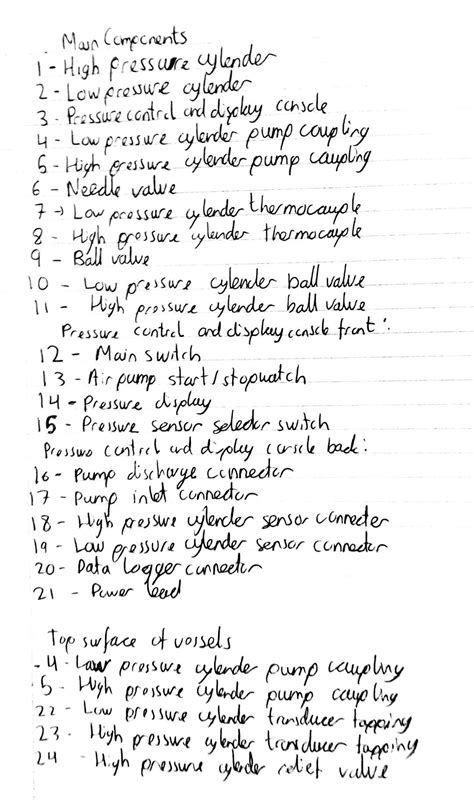 Main Components
1 - High pressure cylender
2 - Low pressure cylender
3 - Pressure control and display console
4 - Low pressure cylender pump coupling
5 - High pressure cylender pump coupling
6 - Needle valve
7 → Low pressure cylender thermocouple
8 - High pressure cylender thermocouple
9 - Ball valve
10 - Low pressure cylender ball valve
11 - High pressure cylender ball valve
Pressure control and display console front:
12 - Main switch
13 - Air pump start/stopwatch
14 - Pressure display
15 - Pressure sensor selector switch
Pressure control and display console back:
16 - Pump discharge connector
17 - Pump inlet connector
18 - High pressure cylender sensor connecter
19 - Low pressure cylender sensor connector
20 - Data logger connector
21 - Power lead
Top surface of vessels
4 - Low pressure cylender pump coupling
5 - High pressure cylender pump coupling
22 - Low pressure cylender transducer tapping
23 - High pressure cylender transducer tapping
24 - High pressure cylender relief valve